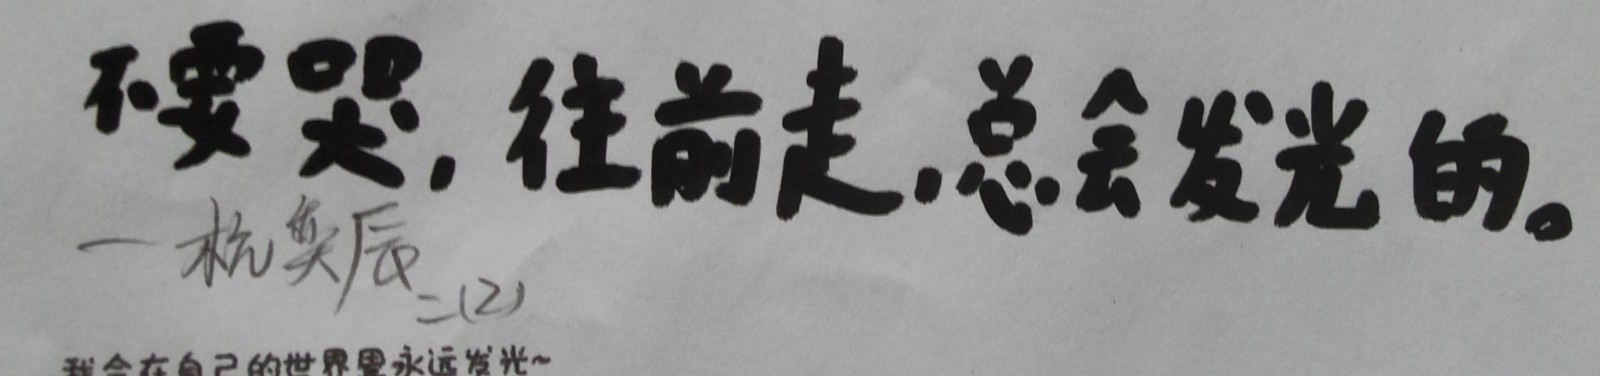 不要哭，往前走，总会发光的。
一杭奕辰
二(2)
我会在自己的世界里永远发光~